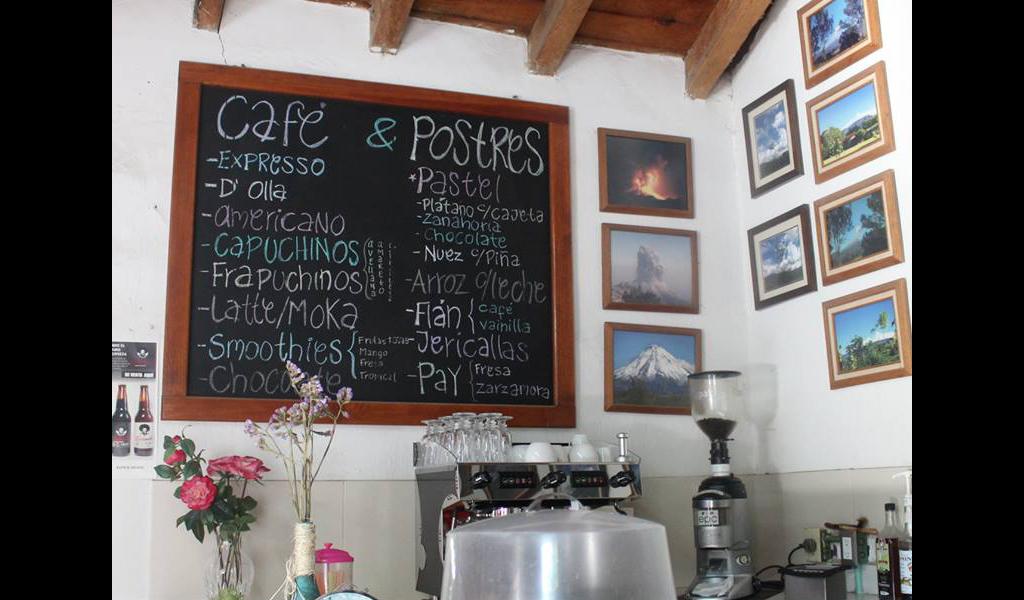 Café & Postres
-Expresso
-D' Olla
-americano
-Capuchinos
avellana
amareto
-Frapuchinos
-Latte/Moka
-Smoothies
Mango
Fresa
Tropical
-Chocolate
*Pastel
-Plátano c/cajeta
-Zanahoria
-Chocolate
-Nuez c/Piña
-Arroz c/leche
-Flán
café
vainilla
-Jericallas
-Pay
Fresa
zarzamora